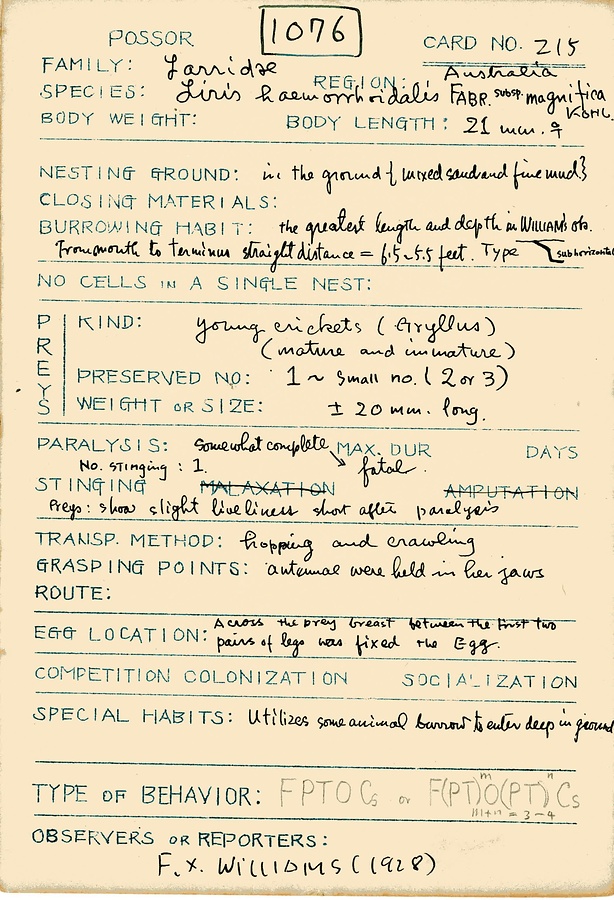 1076
POSSOR CARD NO. 215
FAMILY: Larridae REGION: Australia
SPECIES: Liris haemorrhoidalis FABR. subsp. magnifica KOHL.
BODY WEIGHT: BODY LENGTH: 21 mm. ♀
NESTING GROUND: in the ground { mixed sand and fine mud }
CLOSING MATERIALS:
BURROWING HABIT: the greatest length and depth in WILLIAMS obs.
From mouth to terminus straight distance = 6.5~5.5 feet. Type subhorizontal
NO CELLS IN A SINGLE NEST:
PREYS
KIND: young crickets (Gryllus)
(mature and immature)
PRESERVED NO: 1 ~ small no. (2 or 3)
WEIGHT OR SIZE: ± 20 mm. long.
PARALYSIS: somewhat complete MAX. DUR DAYS
No. stinging: 1. fatal.
STINGING MALAXATION AMPUTATION
Preys: show slight liveliness short after paralysis
TRANSP. METHOD: hopping and crawling
GRASPING POINTS: antennae were held in her jaws
ROUTE:
EGG LOCATION: Across the prey breast between the first two
pairs of legs was fixed the Egg.
COMPETITION COLONIZATION SOCIALIZATION
SPECIAL HABITS: Utilizes some animal burrow to enter deep in ground
TYPE OF BEHAVIOR: FPTOCs or F(PT)ᵐO(PT)ⁿCs
m+n = 3-4
OBSERVERS OR REPORTERS:
F. X. WILLIAMS (1928)